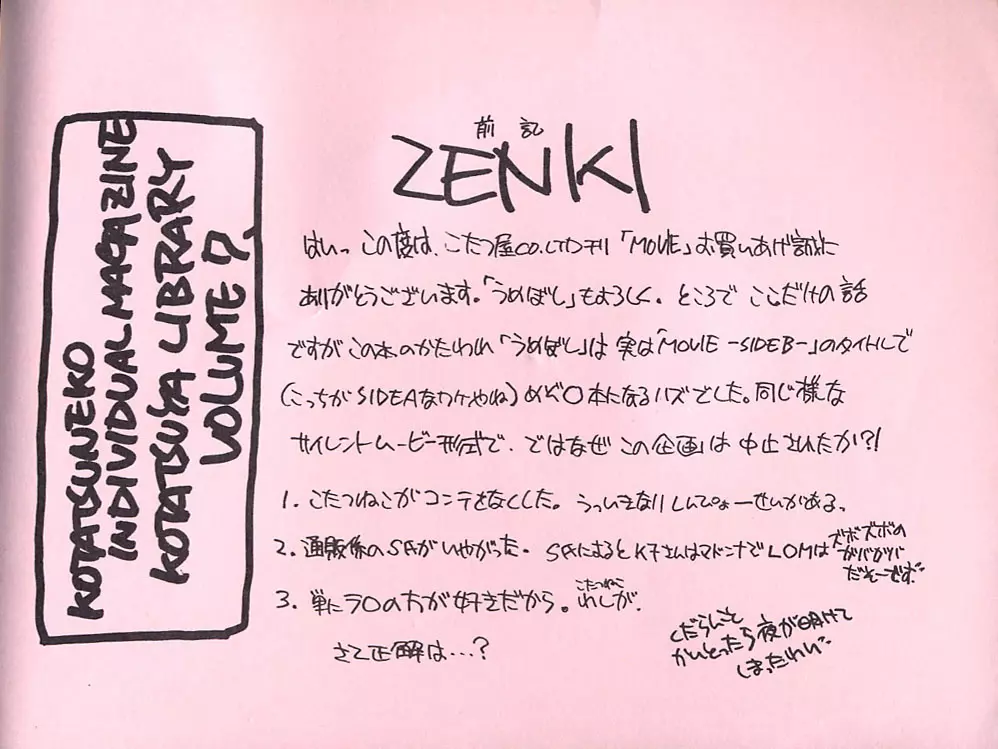 KOTATSUNEKO
INDIVIDUAL MAGAZINE
KOTATSUYA LIBRARY
VOLUME 7.
前記
ZENKI
はいっ この度は、こたつ屋CO.LTD刊「MOVIE」お買いあげ誠に
ありがとうございます。「うめぼし」もよろしく。ところで ここだけの話
ですが この本のかたわれ「うめぼし」は 実は「MOVIE -SIDEB-」のタイトルで
(こっちが SIDEAなワケやね)めぞ〇本になるハズでした。同じ様な
サイレントムービー形式で。ではなぜ この企画は 中止されたか?!
1. こたつねこがコンテをなくした。 うっいきなりしんぴょーせいがある。
2. 通販係のS氏がいやがった。 S氏によるとK子さんはマドンナでLOMは
ズボズボの
ガバガバ
だそーでず
3. 単にラ〇の方が好きだから。わしが。
こたつねこ
さて正解は…?
くだらんこと
かいとったら夜が明けて
しまったわい